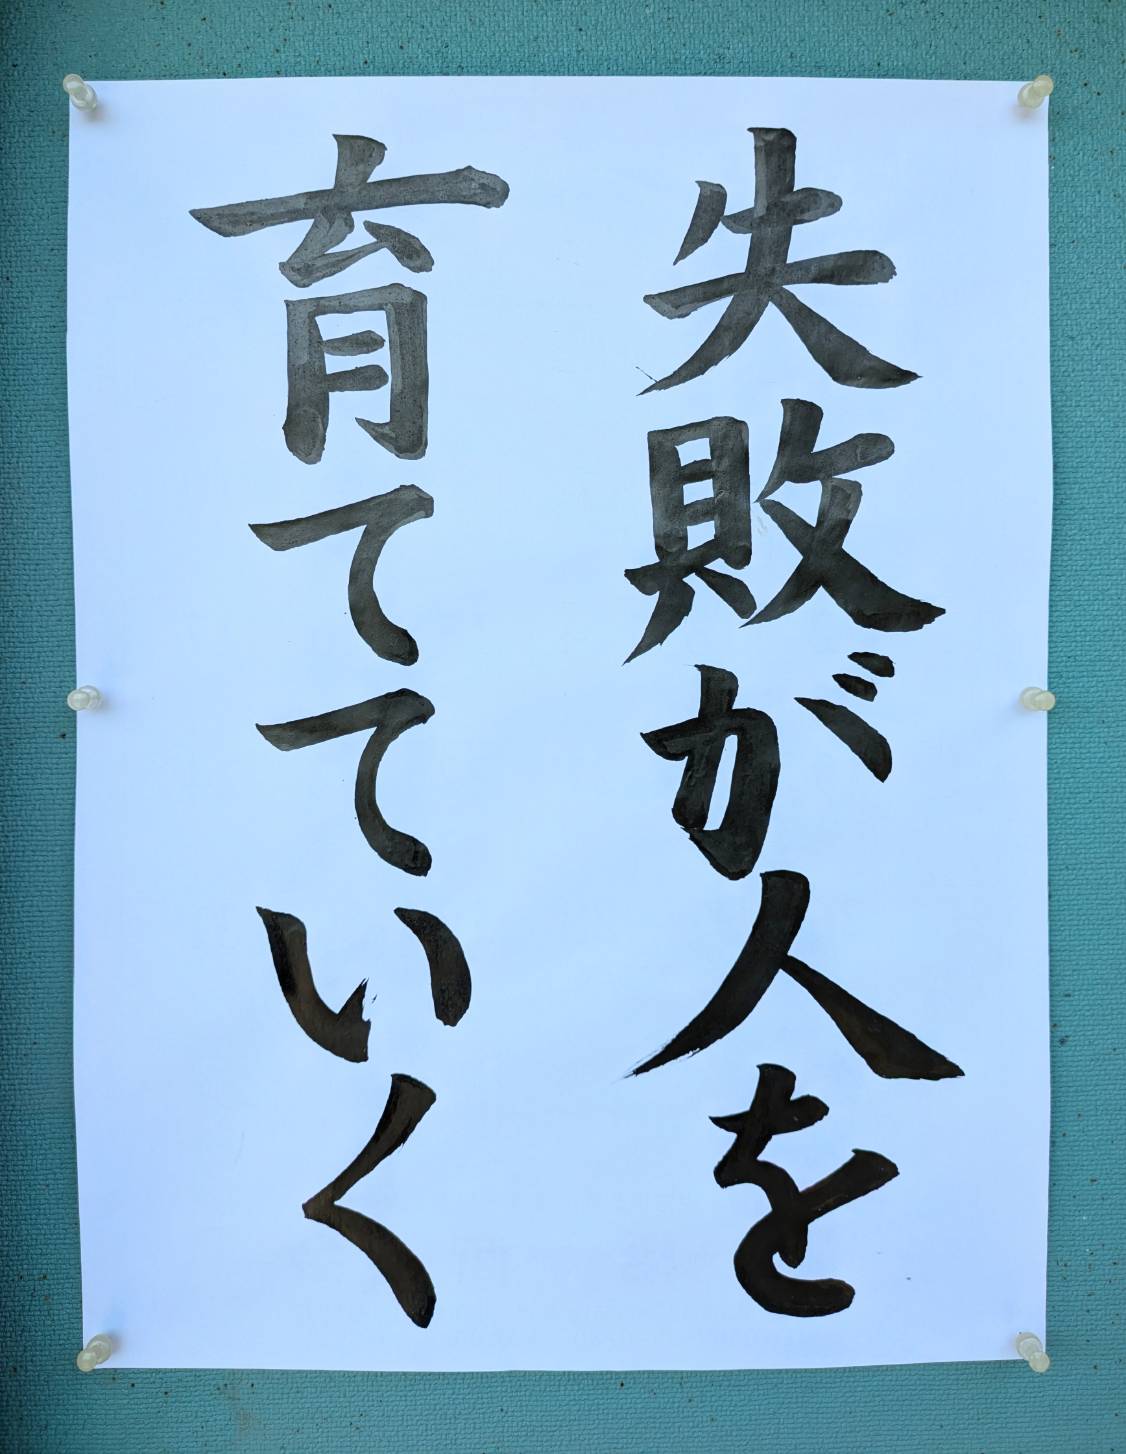 失敗が人を
育てていく